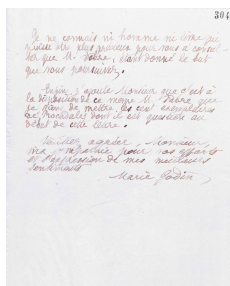 304
Je ne connais ni homme ni livre qui
puisse être plus précieux pour vous à consul-
ter que M. Dèbre, étant donné le but
que vous poursuivez.
Enfin, j'ajoute Monsieur que c'est à
la disposition de ce même M. Dèbre que
je viens de mettre les cent exemplaires
de dont il est question au
début de cette lettre.
Veuillez agréer, Monsieur,
ma sympathie pour vos efforts
et l'expression de mes meilleurs
sentiments
Marie Godin